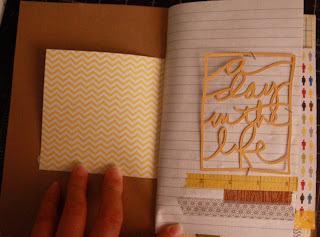 a
day
in the
life